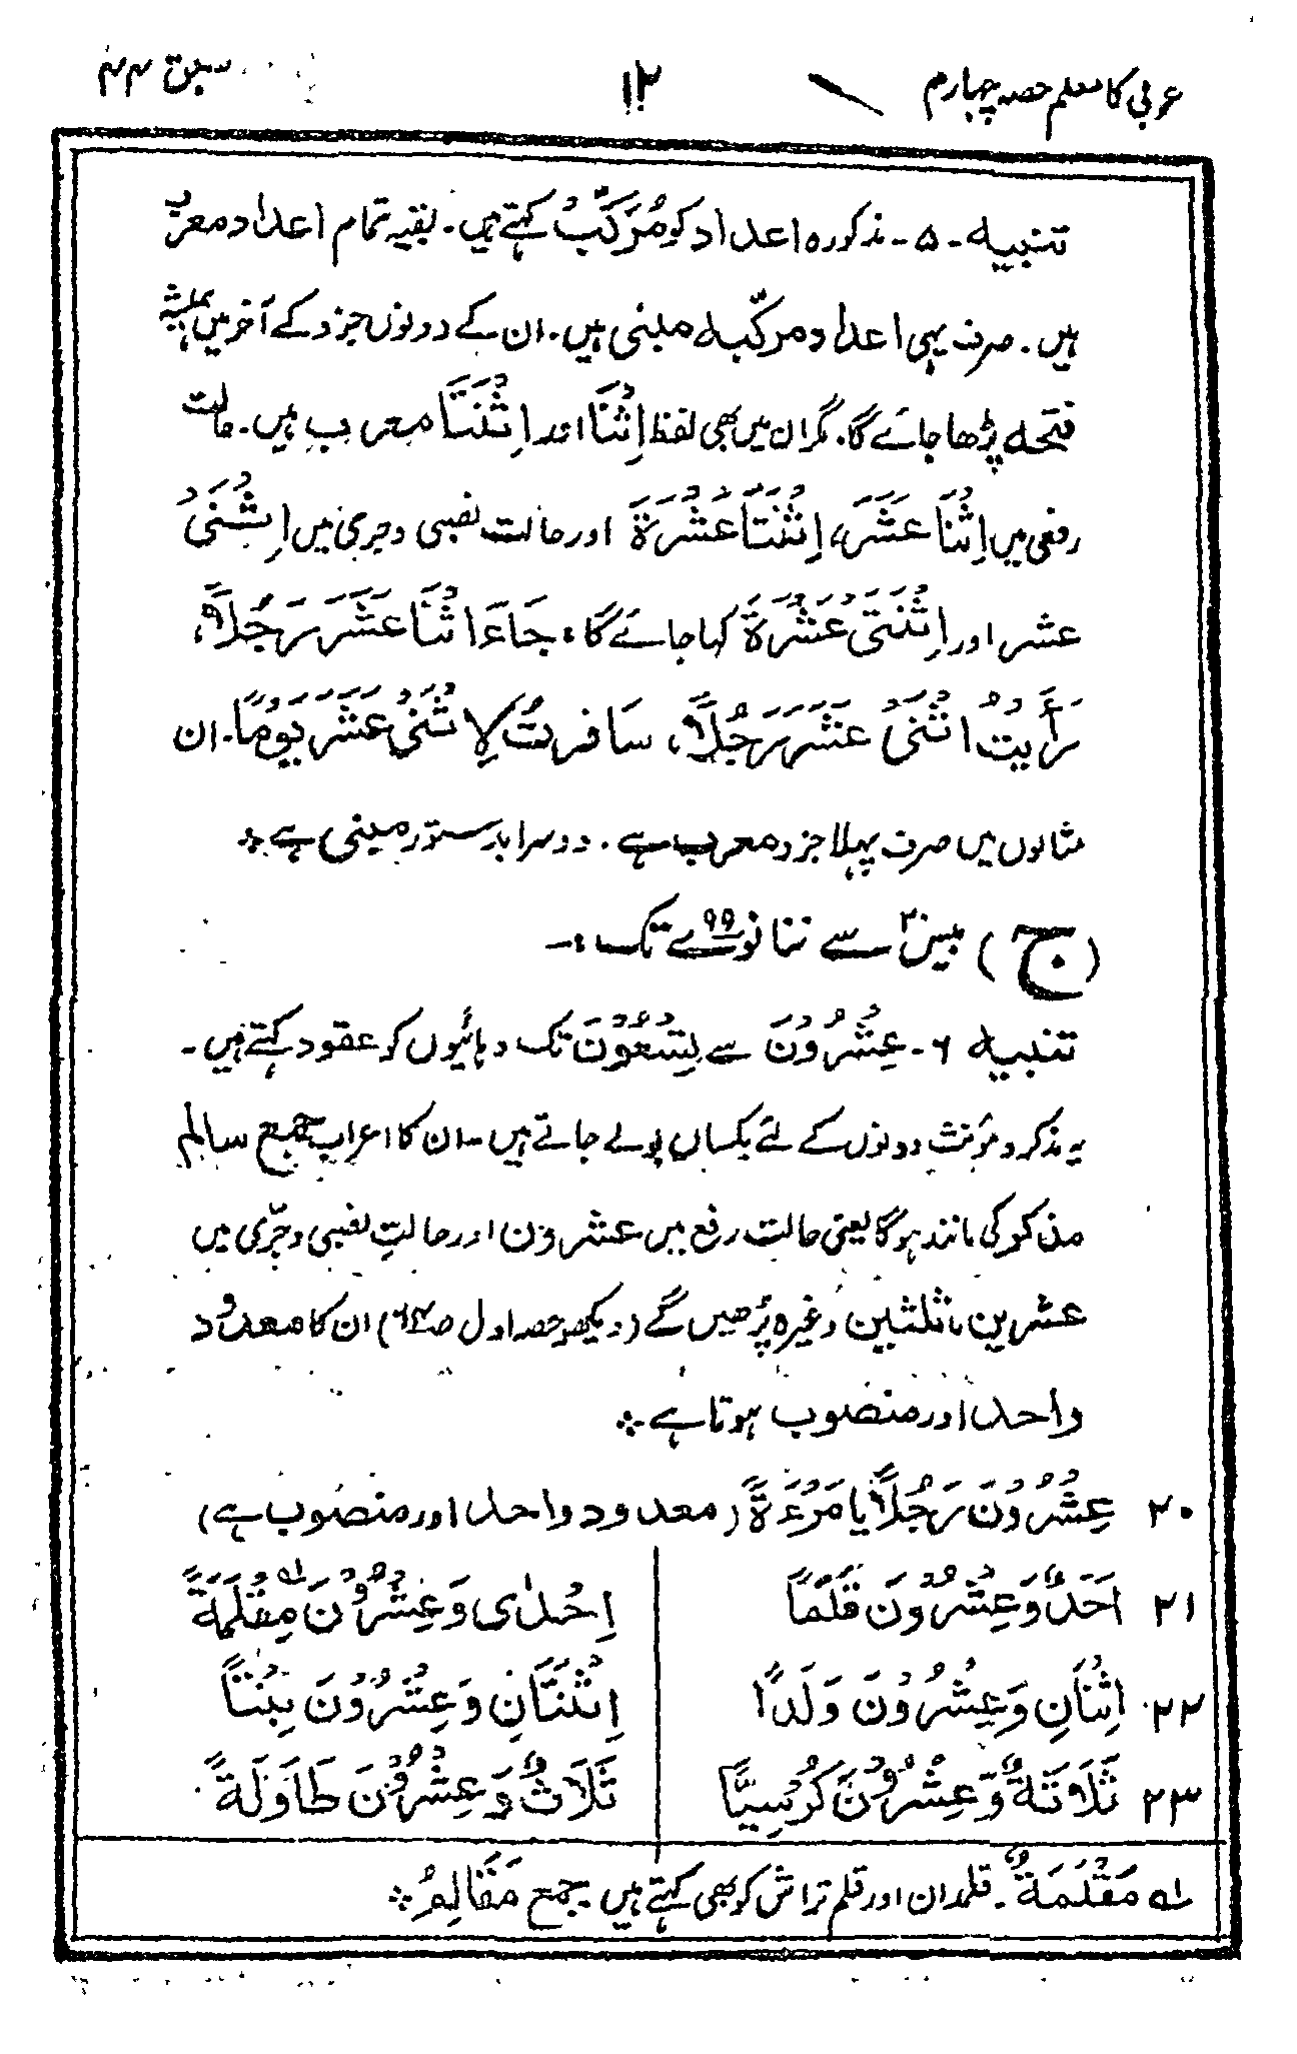 عربی کا معلم حصہ چہارم
۱۲
سبق ۴۴
تنبیہ - ۵ - مذکورہ اعداد کو مُرَکَّبْ کہتے ہیں۔ بقیہ تمام اعداد معرب
ہیں۔ صرف یہی اعداد مرکّبہ مبنی ہیں۔ ان کے دونوں جزء کے آخر میں ہمیشہ
فتحہ پڑھا جائے گا۔ مگر ان میں بھی لفظ اِثْنَا اور اِثْنَتَا معرب ہیں۔ حالت
رفعی میں اِثْنَا عَشَرَ، اِثْنَتَا عَشْرَةَ اور حالت نصبی و جری میں اِثْنَیْ
عشر اور اِثْنَتَیْ عَشْرَةَ کہا جائے گا: جَاءَ اثْنَا عَشَرَ رَجُلًا،
رَأَیْتُ اثْنَیْ عَشَرَ رَجُلًا، سَافرتُ لِاثْنَیْ عَشَرَ یَوْمًا۔ ان
مثالوں میں صرف پہلا جزء معرب ہے۔ دوسرا بدستور مبنی ہے ؞
(ج) بیس۲۰ سے ننانوے۹۹ تک :-
تنبیہ ۶ - عِشْرُوْنَ سے تِسْعُوْنَ تک دہائیوں کو عقود کہتے ہیں۔
یہ مذکر و مؤنث دونوں کے لئے یکساں بولے جاتے ہیں۔ ان کا اعراب جمع سالم
مذکر کی مانند ہوگا یعنی حالت رفع میں عشرون اور حالتِ نصبی و جرّی میں
عشرین، ثلثین وغیرہ پڑھیں گے (دیکھو حصہ اول) ان کا معدود
واحد اور منصوب ہوتا ہے ؞
۲۰ عِشْرُوْنَ رَجُلًا یا مَرْءَةً (معدود واحد اور منصوب ہے)
۲۱ اَحَدٌ وَعِشْرُوْنَ قَلَمًا اِحْدٰی وَعِشْرُوْنَ مِقْلَمَةً لہ
۲۲ اِثْنَانِ وَعِشْرُوْنَ وَلَدًا اِثْنَتَانِ وَعِشْرُوْنَ بِنْتًا
۲۳ ثَلَاثَةٌ وَّعِشْرُوْنَ كُرْسِيًّا ثَلَاثٌ وَّعِشْرُوْنَ طَاوَلَةً
لہ مَقْلَمَةٌ۔ قلمدان اور قلم تراش کو بھی کہتے ہیں جمع مَقَالِمُ ؞